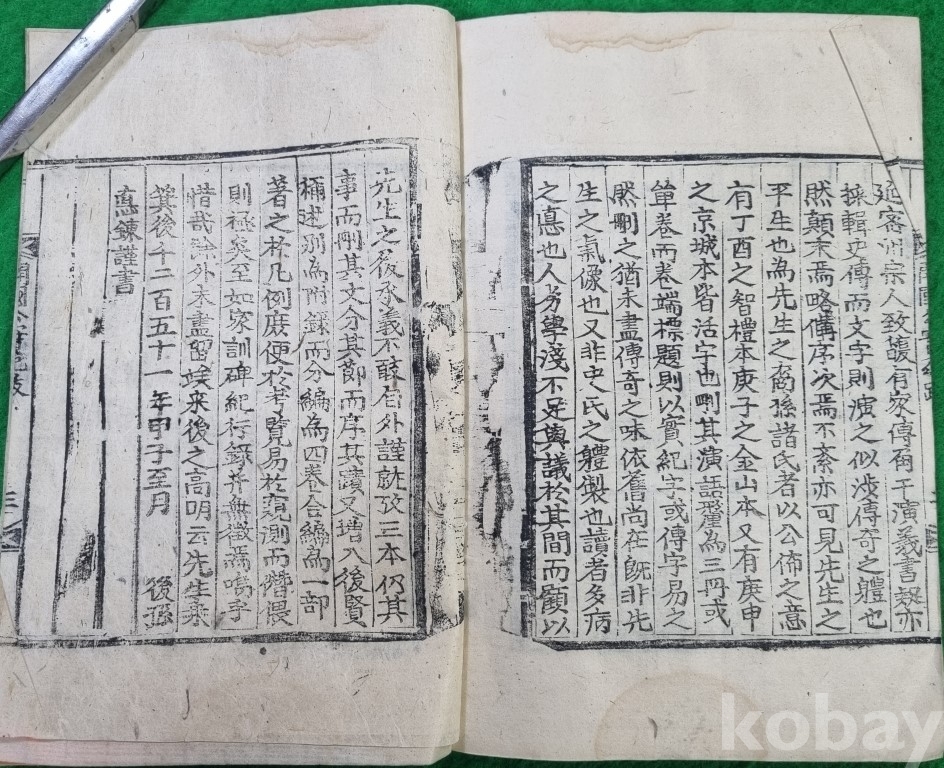 延客洞宗人致馥有家傳
演義書
採輯史傳而文字則演之似涉傳奇之體也
然顛末焉略備序次焉不紊亦可見先生之
平生也為先生之裔孫諸氏者以公佈之意
有丁酉之智禮本庚子之金山本又有庚申
之京城本皆活字也刪其演語釐為三冊或
單卷而卷端標題則以實紀字或傳字易之
然刪之猶未盡傳奇之味依舊尚在旣非先
生之氣像也又非史氏之體製也讀者多病
之
也人劣學淺不足與議於其間而顧以
先生之後承義不辭
外謹就
三本仍其
事而刪其文分其節而序其讀又增入後賢
稱述別為附錄而分編為四卷合編為一部
著之於凡例庶便於考覽易於窺測而僭偎
則極矣至如家訓碑紀行錄并無徵焉嗚乎
惜哉餘外未盡
竢來後之高明云先生棄
箕後千二百五十一年甲子至月
後孫
鍊謹書
kobay